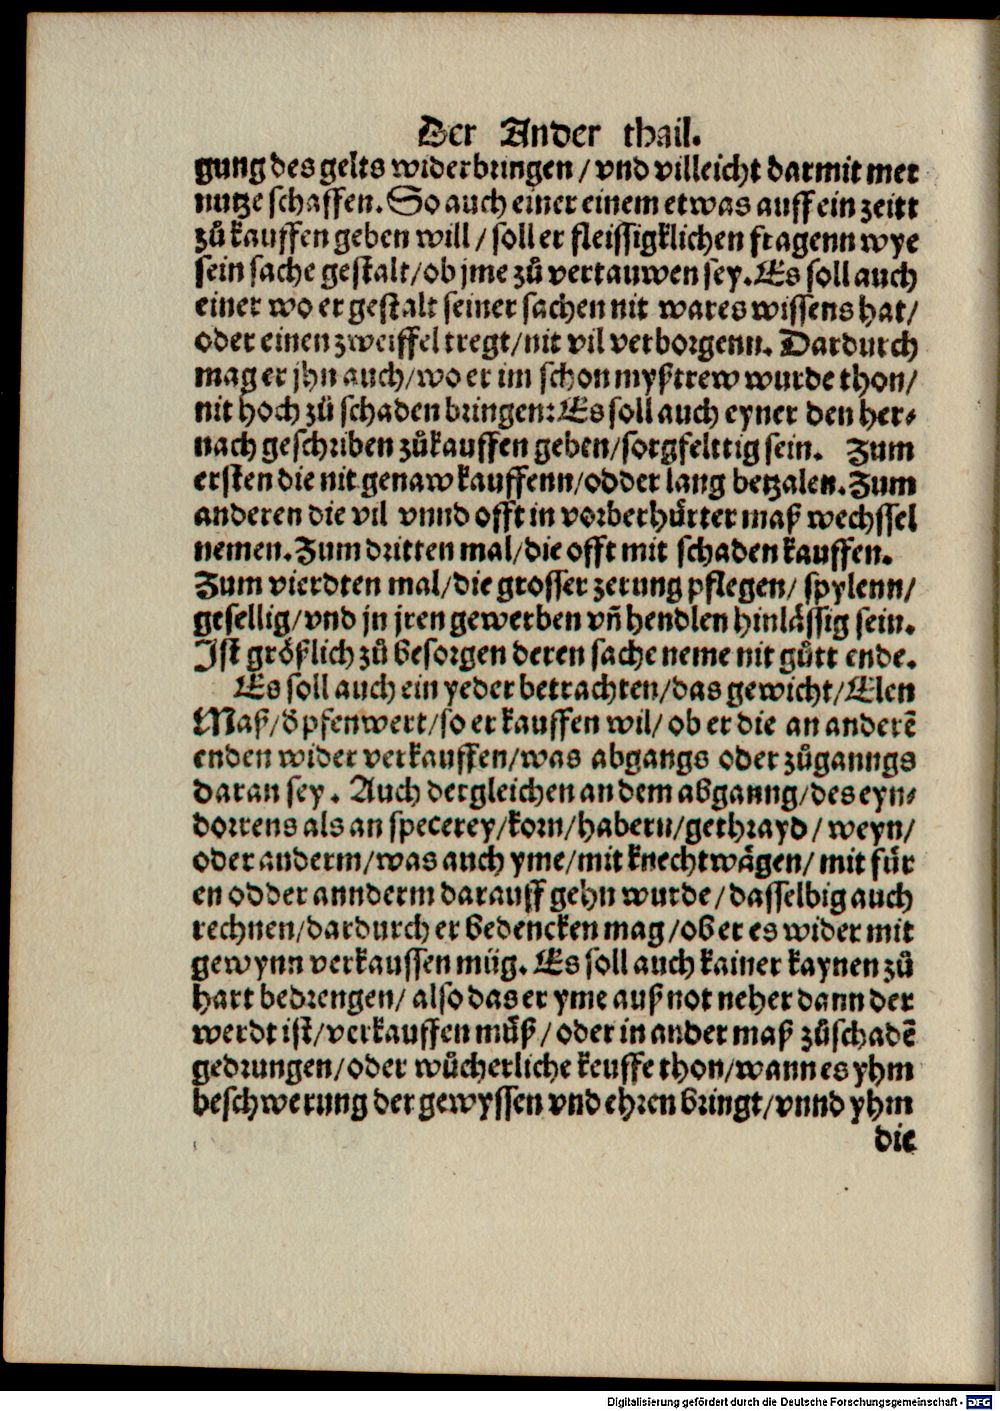 Der Ander thail.
gung des gelts widerbringen / vnd villeicht darmit mer
nutze schaffen. So auch einer einem etwas auff ein zeitt
zů kauffen geben will / soll er fleissigklichen fragenn wye
sein sache gestalt / ob jme zů vertauwen sey. Es soll auch
einer wo er gestalt seiner sachen nit wares wissens hat /
oder einen zweiffel tregt / nit vil verborgenn. Dardurch
mag er jhn auch / wo er im schon myßtrew wurde thon /
nit hoch zů schaden bringen: Es soll auch eyner den her⸗
nach geschriben zůkauffen geben / sorgfelttig sein. Zum
ersten die nit genaw kauffenn / odder lang betzalen. Zum
anderen die vil vnnd offt in vorberhůrter maß wechssel
nemen. Zum dritten mal / die offt mit schaden kauffen.
Zum vierdten mal / die grosser zerung pflegen / spylenn /
gesellig / vnd jn jren gewerben vñ hendlen hinlässig sein.
Ist größlich zů besorgen deren sache neme nit gůtt ende.
Es soll auch ein yeder betrachten / das gewicht / Elen
Maß / dpfenwert / so er kauffen wil / ob er die an anderē
enden wider verkauffen / was abgangs oder zůganngs
daran sey. Auch dergleichen an dem abganng / des eyn⸗
dorrens als an specerey / korn / habern / gethrayd / weyn /
oder anderm / was auch yme / mit knechtwägen / mit fůr
en odder annderm darauff gehn wurde / dasselbig auch
rechnen / dardurch er bedencken mag / ob er es wider mit
gewynn verkauffen můg. Es soll auch kainer kaynen zů
hart bedrengen / also das er yme auß not neher dann der
werdt ist / verkauffen můß / oder in ander maß zůschadē
gedrungen / oder wůcherliche keuffe thon / wann es yhm
beschwerung der gewyssen vnd ehren bringt / vnnd yhm
die
Digitalisierung gefördert durch die Deutsche Forschungsgemeinschaft - DFG